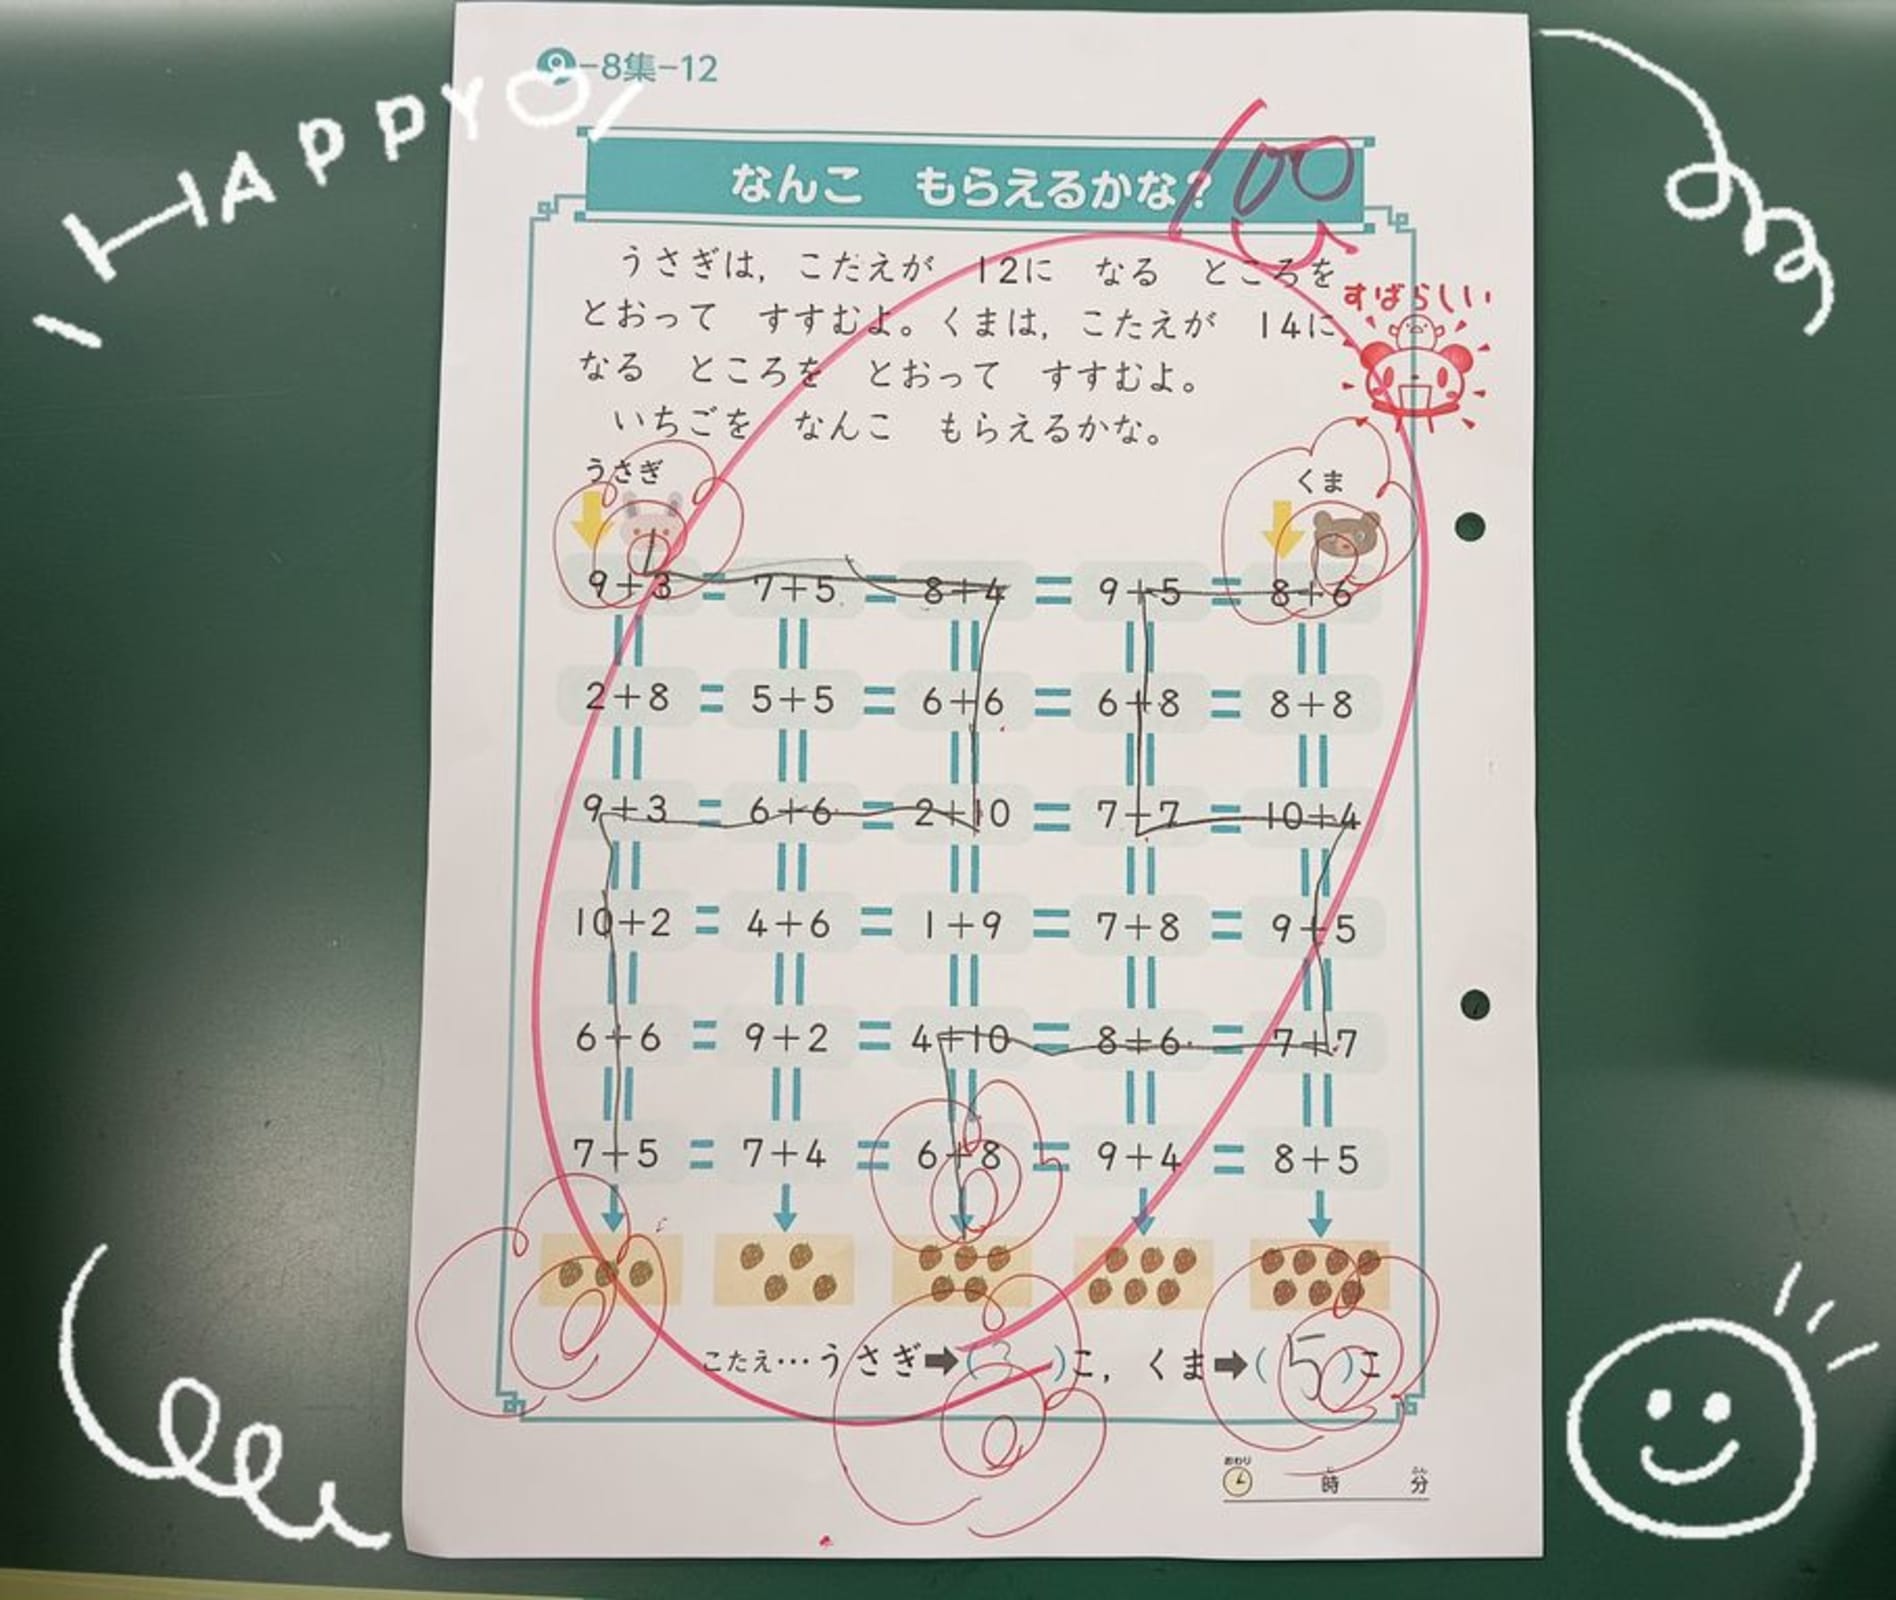 HAPPY
9-8集-12
100
なんこ もらえるかな?
うさぎは, こたえが 12に なる ところを
とおって すすむよ。くまは, こたえが 14に
なる ところを とおって すすむよ。
いちごを なんこ もらえるかな。
すばらしい
うさぎ くま
9+3 = 7+5 = 8+4 = 9+5 = 8+6
2+8 = 5+5 = 6+6 = 6+8 = 8+8
9+3 = 6+6 = 2+10 = 7+7 = 10+4
10+2 = 4+6 = 1+9 = 7+8 = 9+5
6+6 = 9+2 = 4+10 = 8+6 = 7+7
7+5 = 7+4 = 6+8 = 9+4 = 8+5
こたえ…うさぎ➡(3)こ, くま➡(5)こ
おわり 時じ 分ふん